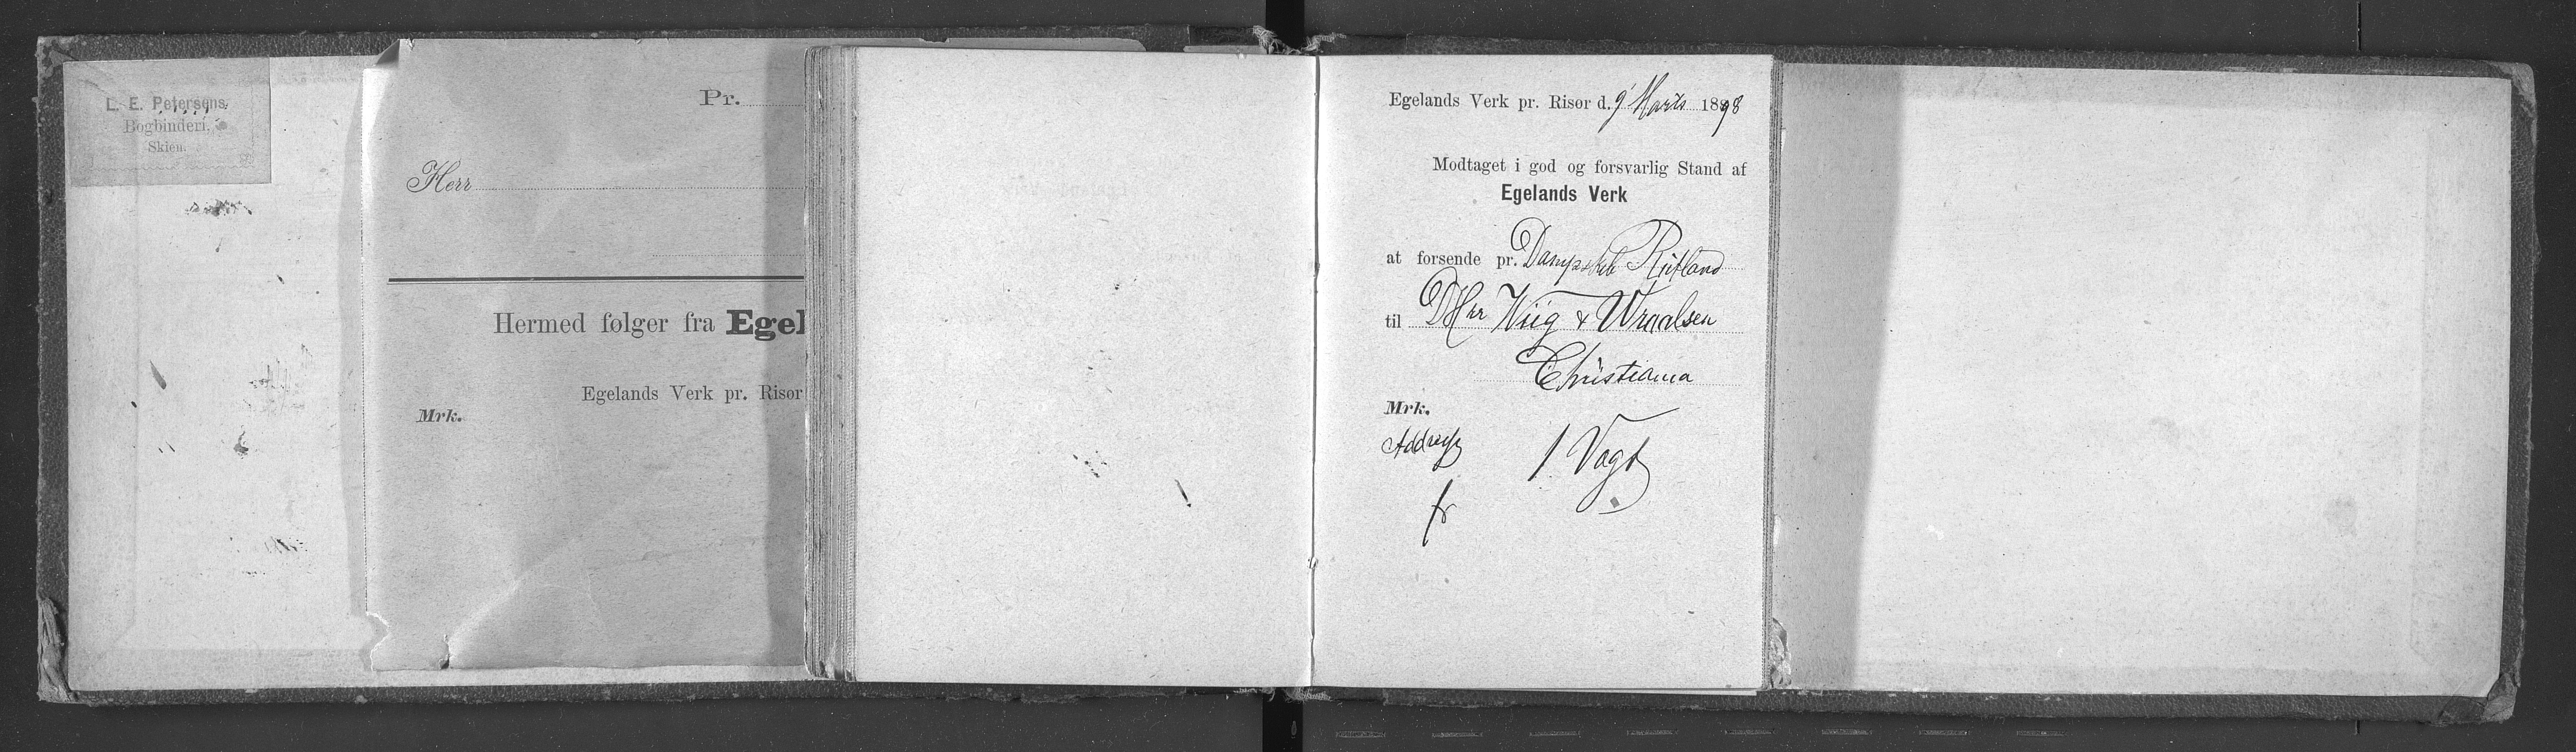 L. E. Petersens
Bogbinderi,
Skien.
Pr.
Herr
Hermed følger fra Egel
Egelands Verk pr. Risør
Mrk.
Egelands Verk pr. Risør d. 9' Marts 1898
Modtaget i god og forsvarlig Stand af
Egelands Verk
at forsende pr. Dampskib Rutland
til DHrr Wiig & Wraalsen
Christiania
Mrk.
Address 1 Vogt
fr